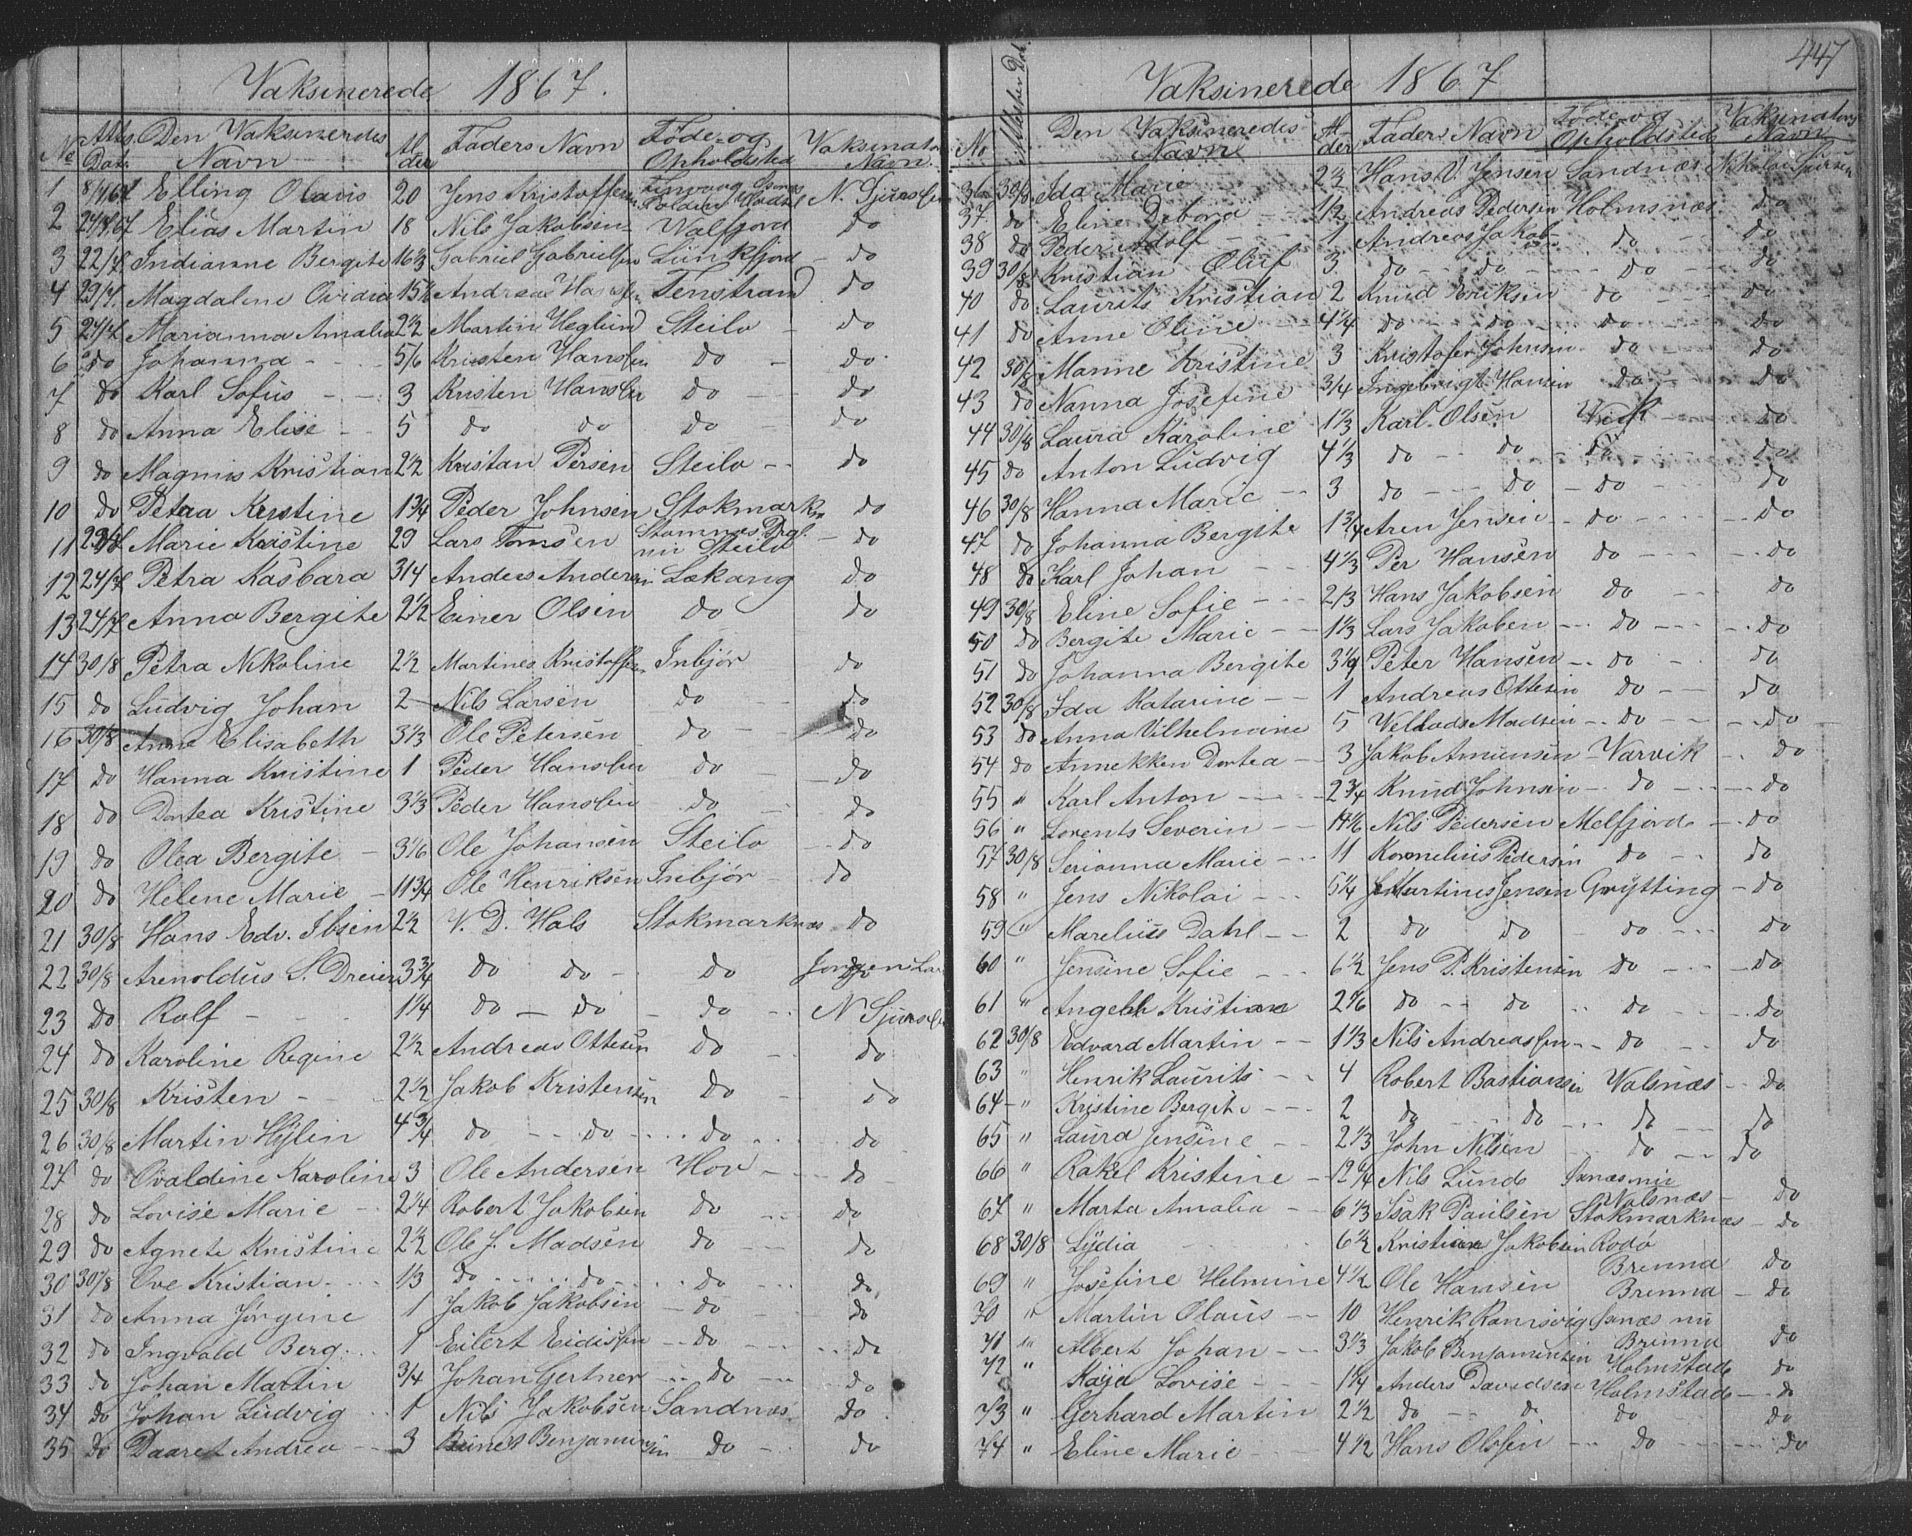 Vaksinerede 1867.
No Attes. Dat. Den Vaksineredes Navn Alder Faders Navn Føde- og Opholdsted Vaksinators Navn.
1 8/4 67 Elling Olaus 20 Jens Kristoffersen N. Sjursen
2 24/4 67 Elias Martin 18 Nils Jakobsen Valfjord do
3 22/7 Indianne Bergite 16 1/3 Gabriel Gabrielsen Lunkfjord - do
4 29/7. Magdalene Ovidia 15 1/2 Andreas Hansen Tenstrand do
5 24/7 Marianna Amalia 2 1/2 Martin Heglund Steilo - do
6 do Johanna - - 5/6 Kristen Hanssen do - do.
7 do Karl Sofus - - 3 Kristen Hanssen do - - do
8 do Anna Elise - 5 do do do - do
9 do Magnus Kristian 2 1/2 Kristan Persen Steilo - - do
10 do Petra Kristine 1 3/4 Peder Johnsen Stokmarkn do
11 23/7 Marie Kristine 29 Lars Tomsen Stamnes nu Steilo - do
12 24/7 Petra Kasbara 3/4 Anders Andersen Løkang do
13 24/7 Anna Bergite 2 1/2 Einer Olsen do do
14 30/8 Petra Nikoline 2 1/2 Martines Kristoffersen Inbjør do
15 do Ludvig Johan 2 Nils Larsen do - do
16 30/8 Anne Elisabeth 3 1/3 Ole Petersen do - - do
17 do Hanna Kristine 1 Peder Hanssen do - do
18 do Dortea Kristine 3 1/3 Peder Hanssen do - do
19 do Olea Bergite - 3 1/6 Ole Johansen Steilo - do
20 do Helene Marie - 11 3/4 Ole Henriksen Inbjør - do
21 30/8 Hans Edv. Ibsen 2 1/2 V. D. Hals Stokmarknæs do
22 30/8 Arnoldus S. Dreier 3 3/4 do do - do Jørgen
23 do Rolf - - 1 1/4 do - do - do - N Sjursen
24 do Karoline Regine 2 1/2 Andreas Ottesen do - - do
25 30/8 Kristen - - 2 1/2 Jakob Kristensen do do
26 30/8 Martin Hylin 4 3/4 do - - do - - do - - do
27 do Ovaldine Karoline 3 Ole Andersen Hov - - do
28 do Lovise Marie - 2 1/4 Robert Jakobsen do - - do
29 do Agnete Kristine 2 1/2 Ole J. Madsen do - - do
30 30/8 Ove Kristian - - 1/3 do - - do - - do - do
31 do Anna Jørgine 1 Jakob Jakobsen - do - do
32 do Ingvald Berg - - 1 Eilert Eidissen - - do - - do
33 do Johan Martin 3/4 Johan Gertner - - do - - do
34 do Johan Ludvig 1 Nils Jakobsen Sandnæs do
35 do Daaret Andrea - - 3 Benjaminsen do - do
447
Vaksinerede 1867
No Attesten Dat. Den Vaksineredes Navn Alder Faders Navn Føde og Opholdsted Vaksinators Navn
36 30/8 Ida Marie 2 1/2 Hans V. Jensen Sandnæs Nikolai Sjursen
37 do Eline Debora - - 1/2 Andreas Pedersen Holmsnæs do
38 do Peder Adolf - - 1 Andreas Jakob- do - - do
39 30/8 Kristian Oluf 3 do - do - - do - do
40 do Laurits Kristian 2 Knud Eriksen do - - do
41 do Anne Oline - - 4 1/4 do - - do - - do - - do
42 30/8 Manne Kristine 3 Kristofer Johnsen do - - do
43 do Nanna Josefine 3/4 Ingebrigt Hansen do - do
44 30/8 Laura Karoline 1 1/3 Karl Olsen Vik - - do
45 do Anton Ludvig 4 1/3 do - - do - do - - do
46 30/8 Hanna Marie - - 3 do - - do - do - - do
47 do Johanna Bergite 1 3/4 Aren Jensen - do - - - do
48 do Karl Johan - - 4 1/3 Per Hansen do - - - do
49 30/8 Eline Sofie - - 2/3 Hans Jakobsen do - - do
50 do Bergite Marie - - 1 1/3 Lars Jakoben - - do - - - do
51 do Johanna Bergite 3 1/4 Peter Hansen - - do - - do
52 30/8 Ida Katarine - - 1 Andreas Ottesen do - - do
53 do Anna Vilhelmine 5 Vellads Madsen - - do - - - do
54 do Annekken Dortea - 3 Jakob Amunsen - Varvik - - do
55 " Karl Anton - - - 2 3/4 Knud Johnsen - do - - - do
56 " Lorents Severin - - 14 1/2 Nils Pedersen Melfjord - - do
57 30/8 Serianna Marie - - 11 Kornelius Pedersen do - - do
58 " Jens Nikolai - - - 5 1/4 Martines Jensen Grytting - do
59 " Marelius Dahl - - 2 do do - do - - do
60 " Jensine Sofie - - - 6 1/2 Jens P. Kristensen do - - - do
61 " Angell Kristiane 2 1/6 do - - do - do - - do
62 30/8 Edvard Martin - - 1 1/3 Nils Andreassen - - do - - do
63 " Henrik Laurits - - 4 Robert Bastiansen Valsnæs - - do
64 - " Kristine Bergite - - - 2 do - - do - - do - do
65 " Laura Jensine - - 2 1/3 John Nilsen - - do - - do
66 " Rakel Kristine - 12 Nils Lund nu Valsnæs - do
67 " Marta Amalia - - 6 1/3 Isak Paulsen Stokmarknæs - do
68 30/8 Lydia 6 1/2 Kristian Jakobsen Rodø Brenna do
69 " Josefine Helmine 4 1/2 Ole Hansen Brenna - do
70 " Martin Olaus - - 10 Henrik nu Brenna do
71 " Albert Johan - - - 3 1/3 Jakob Benjaminsen Holmstad do
72 " Kaja Lovise - - - 1 1/4 Anders Davidsen Holmstad - - do
73 " Gerhard Martin 2 1/2 do - - d do do
74 " Eline Marie - - 4 1/2 Hans Olssen - - do - - - do